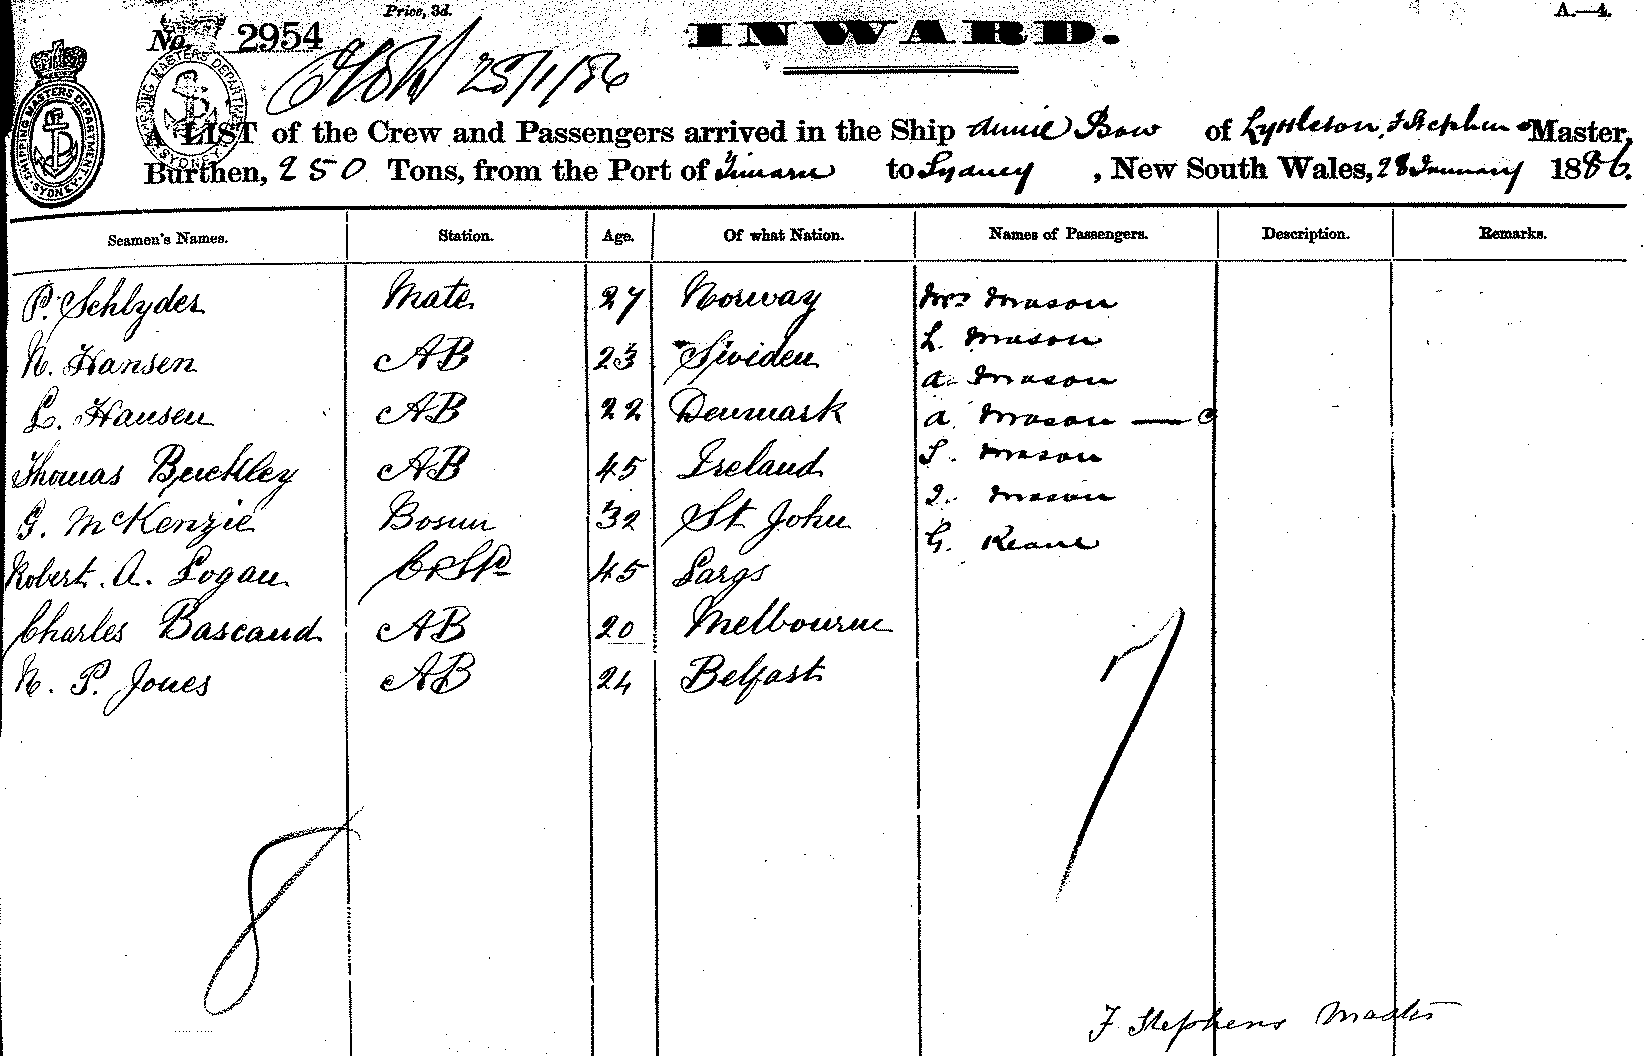 Price, 3d.
A.—4.
No. 2954
INWARD.
28/1/86
A LIST of the Crew and Passengers arrived in the Ship Annie Bow of Lyttleton, F Stephens Master,
Burthen, 250 Tons, from the Port of Timaru to Sydney, New South Wales, 28 January 1886.
Seamen's Names. Station. Age. Of what Nation. Names of Passengers. Description. Remarks.
P. Schlyder Mate 27 Norway Mrs Mason
N. Hansen AB 23 Sweden L. Mason
A. Mason
L. Hansen AB 22 Denmark A. Mason — C
Thomas Buckley AB 45 Ireland S. Mason
G. McKenzie Bosun 32 St John I. Mason
G. Keane
Robert. A. Logan 45 Largs
Charles Bascaud AB 20 Melbourne
N. P. Jones AB 24 Belfast
7
8
F Stephens Master